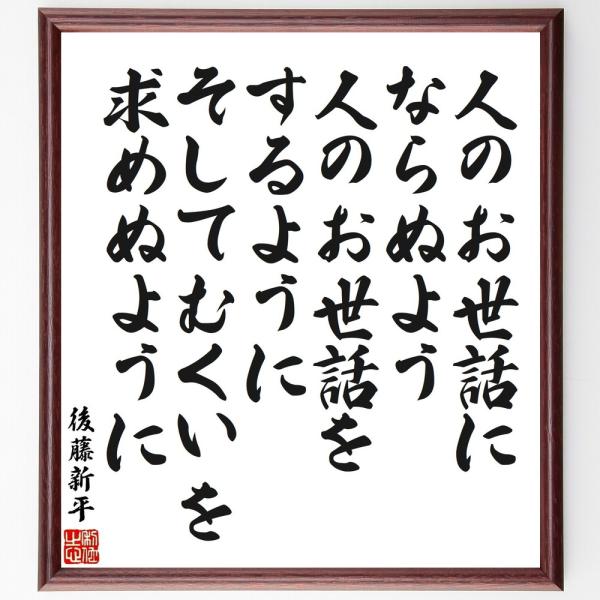 人のお世話に
ならぬよう
人のお世話を
するように
そしてむくいを
求めぬように
後藤新平